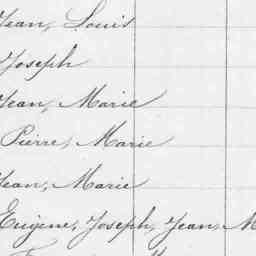 Jean, Louis
Joseph
Jean, Marie
Pierre, Marie
Jean, Marie
Eugène, Joseph, Jean, M